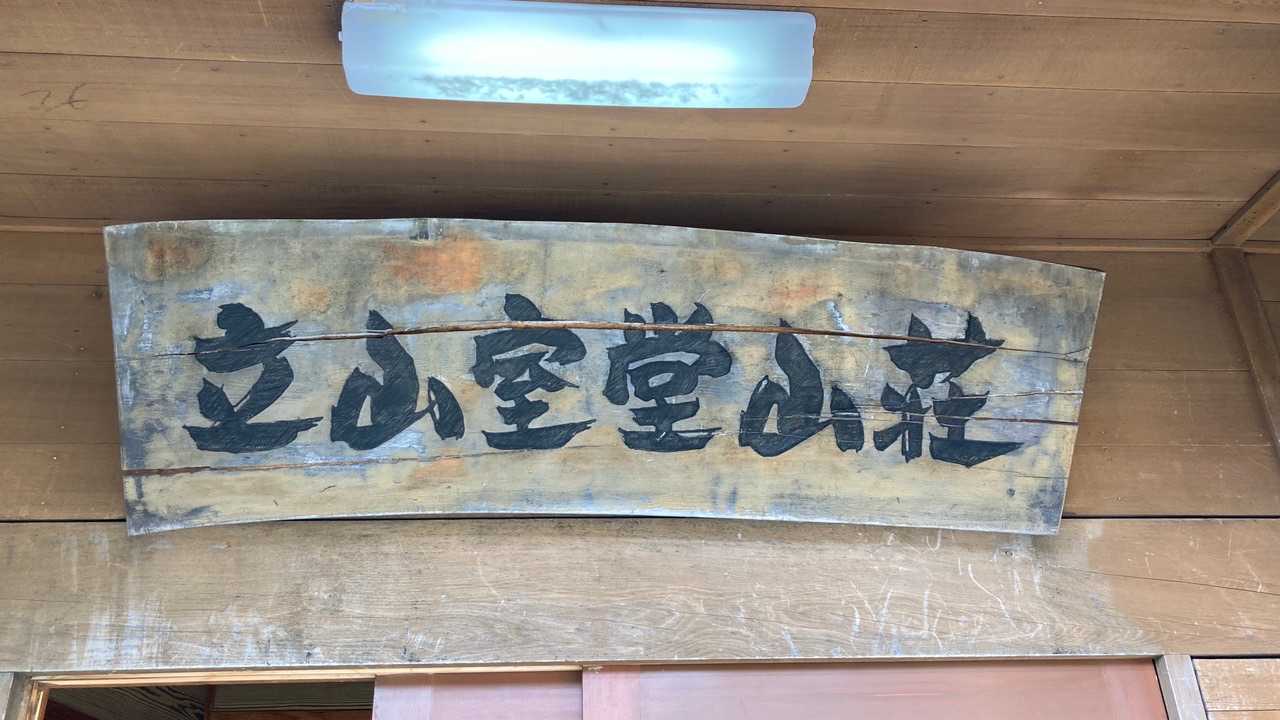 立山室堂山荘